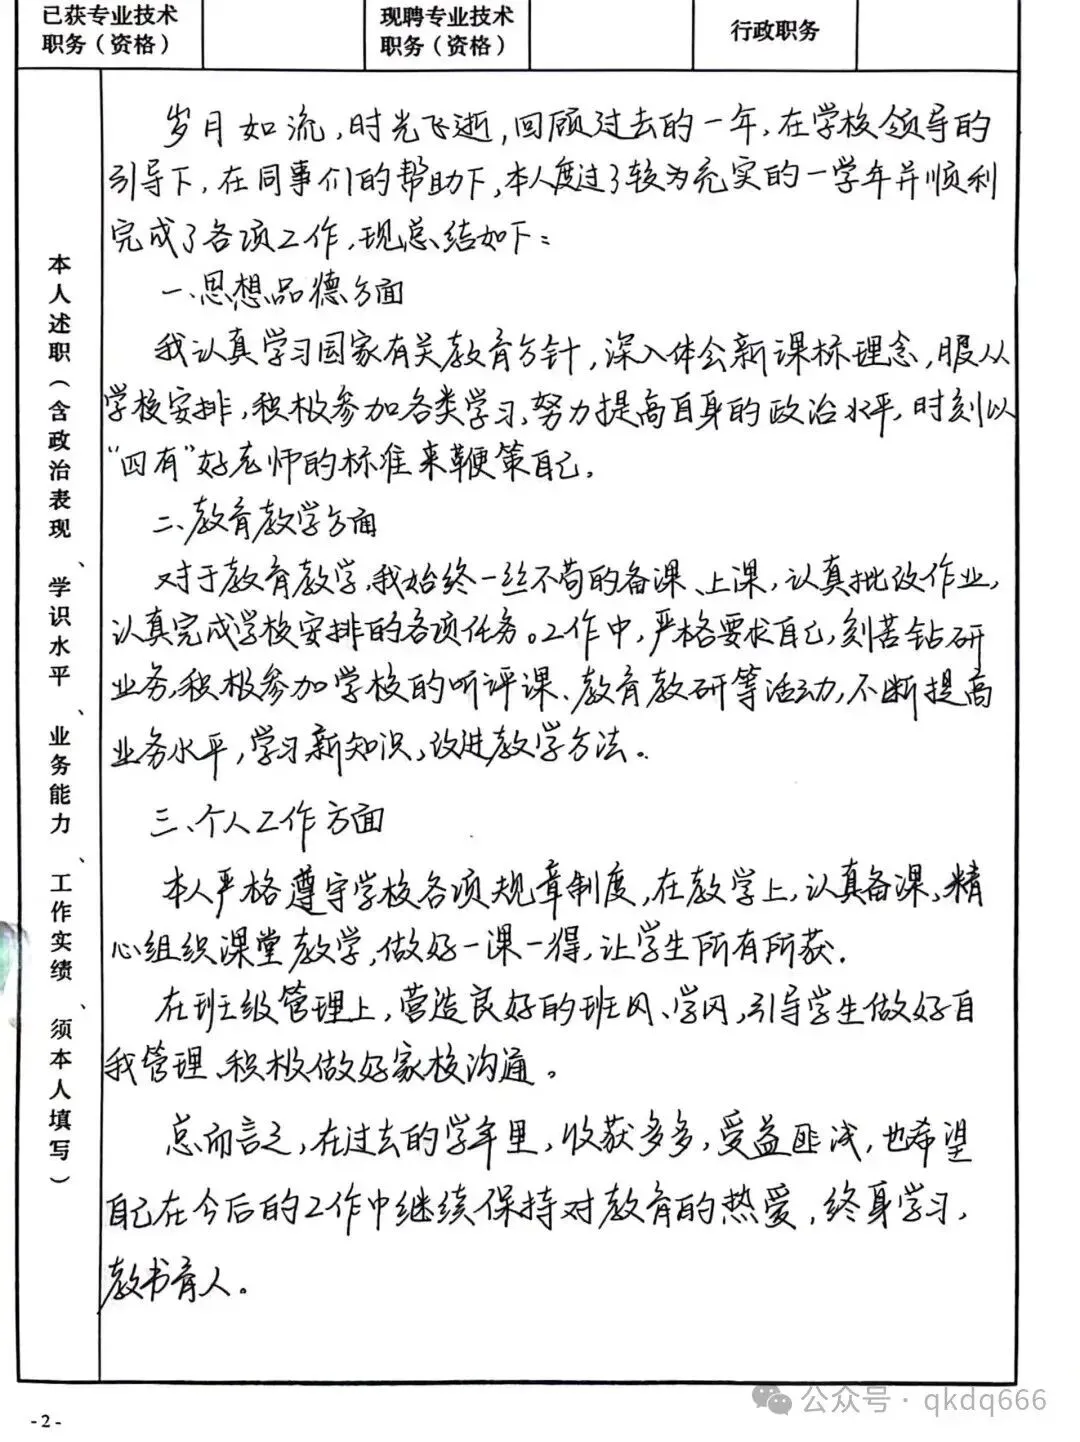 已获专业技术
职务（资格）
现聘专业技术
职务（资格）
行政职务
本人述职（含政治表现、学识水平、业务能力、工作实绩、须本人填写）
岁月如流，时光飞逝，回顾过去的一年，在学校领导的
引导下，在同事们的帮助下，本人度过了较为充实的一学年并顺利
完成了各项工作，现总结如下：
一、思想品德方面
我认真学习国家有关教育方针，深入体会新课标理念，服从
学校安排，积极参加各类学习，努力提高自身的政治水平，时刻以
“四有”好老师的标准来鞭策自己。
二、教育教学方面
对于教育教学，我始终一丝不苟的备课、上课，认真批改作业，
认真完成学校安排的各项任务。工作中，严格要求自己，刻苦钻研
业务，积极参加学校的听评课、教育教研等活动，不断提高
业务水平，学习新知识，改进教学方法。
三、个人工作方面
本人严格遵守学校各项规章制度，在教学上，认真备课，精
心组织课堂教学，做好一课一得，让学生所有所获.
在班级管理上，营造良好的班风、学风，引导学生做好自
我管理、积极做好家校沟通。
总而言之，在过去的学年里，收获多多，受益匪浅，也希望
自己在今后的工作中继续保持对教育的热爱，终身学习，
教书育人。
-2-
公众号·qkdq666